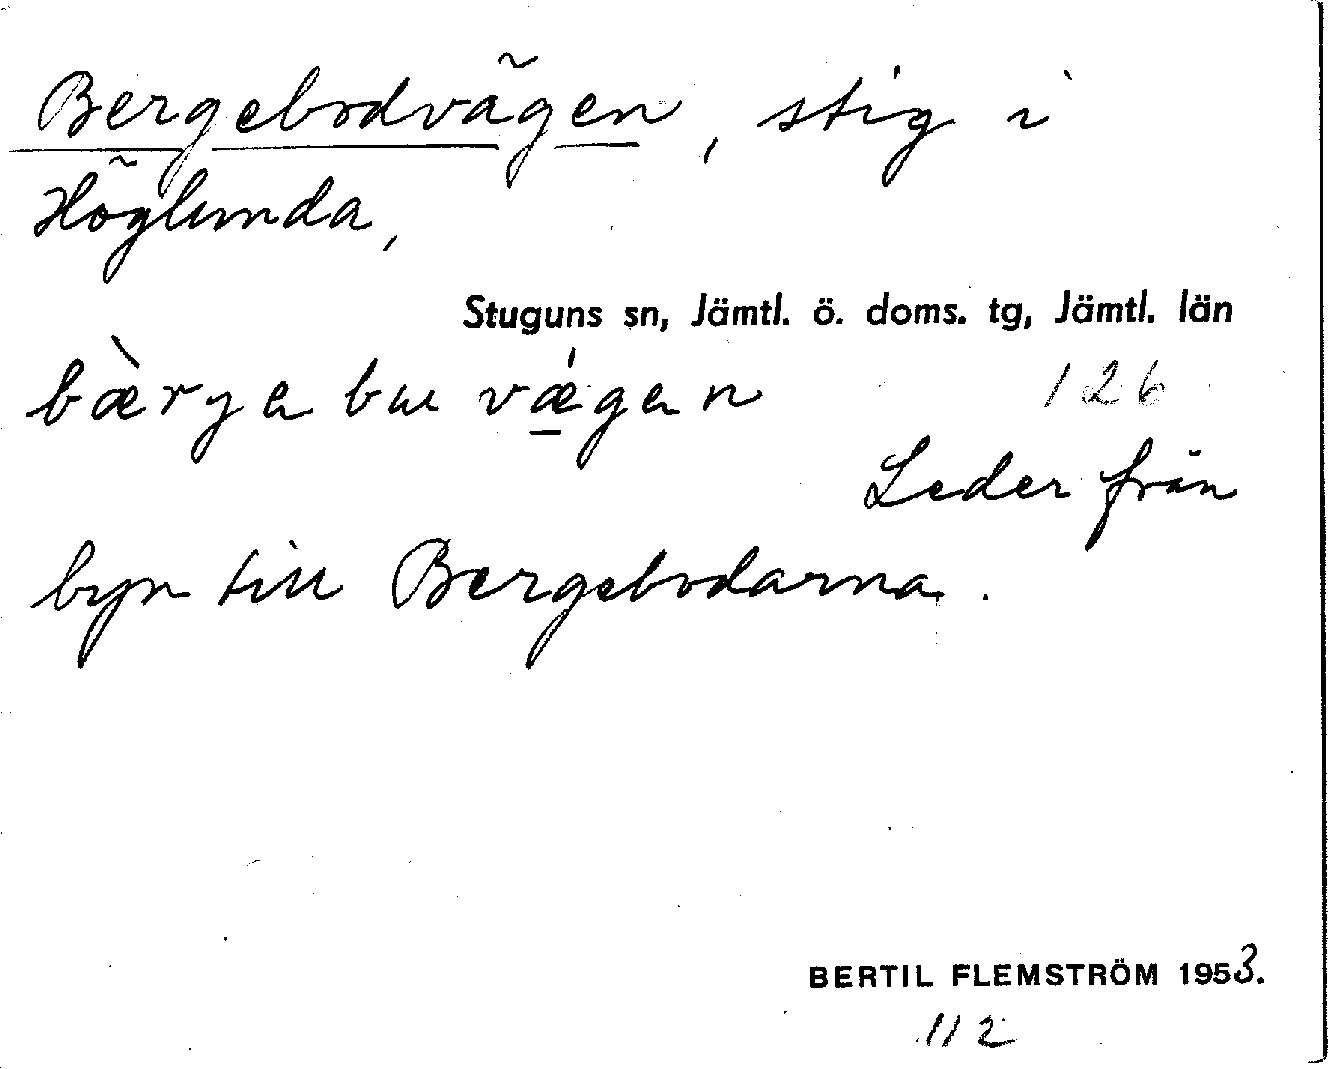 Bergebodvägen, stig i
Höglunda,
Stuguns sn, Jämtl. ö. doms. tg, Jämtl. län
bæ̀rya bɯ vǽ̱gan
126
Leder från
byn till Bergebodarna.
BERTIL FLEMSTRÖM 1953.
112